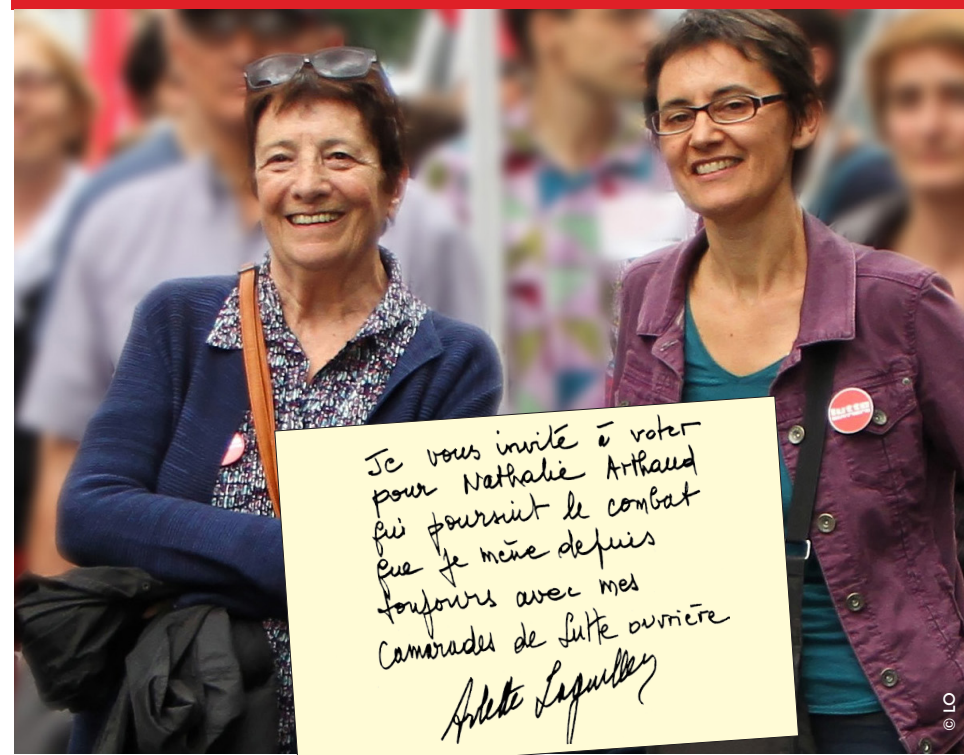 Je vous invite à voter
pour Nathalie Arthaud
qui poursuit le combat
que je mène depuis
toujours avec mes
camarades de Lutte ouvrière
Arlette Laguiller
© LO